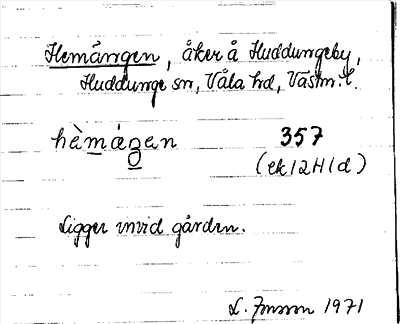 Hemången, åker å Huddungeby,
Huddunge sn, Våla hd, Västm. l.
hèmáŋen 357
(ek 12H1d)
Ligger invid gården.
L. Jonsson 1971